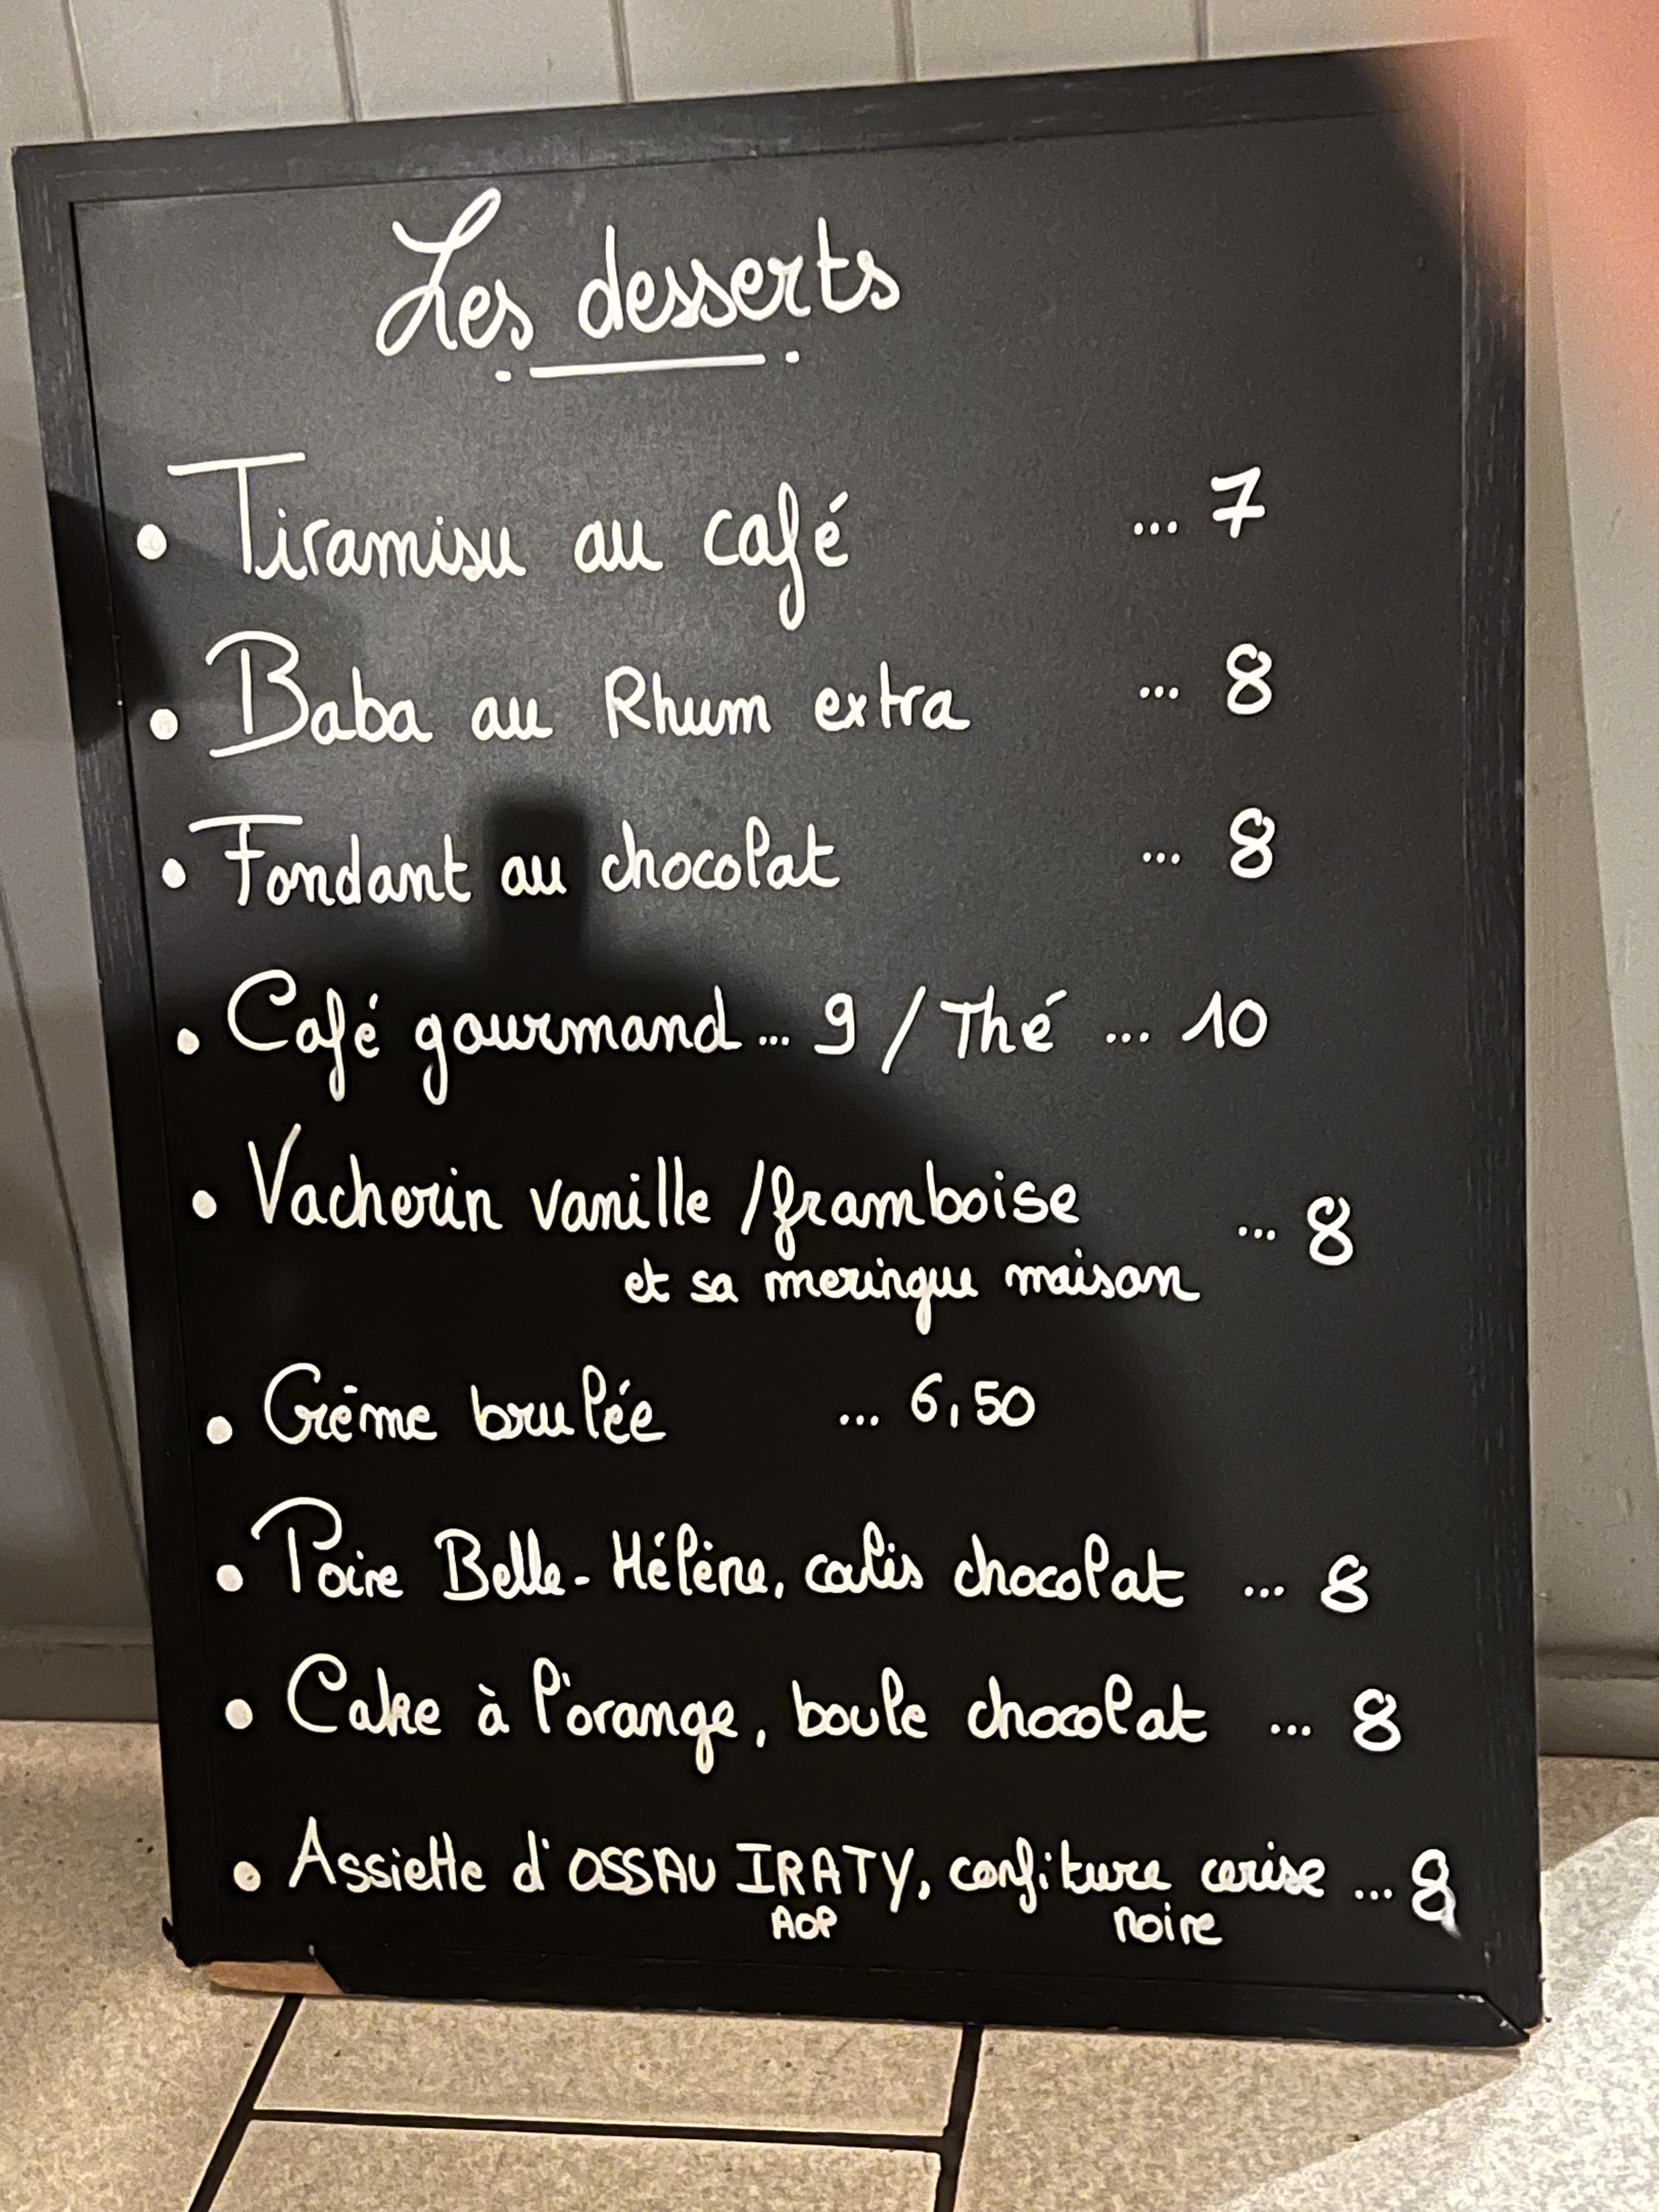 Les desserts
• Tiramisu au café ... 7
• Baba au Rhum extra ... 8
• Fondant au chocolat ... 8
• Café gourmand ... 9 / Thé ... 10
• Vacherin vanille / framboise ... 8
et sa meringue maison
• Crème brulée ... 6,50
• Poire Belle-Hélène, coulis chocolat ... 8
• Cake à l'orange, boule chocolat ... 8
• Assiette d'OSSAU IRATY, confiture cerise ... 8
AOP noire